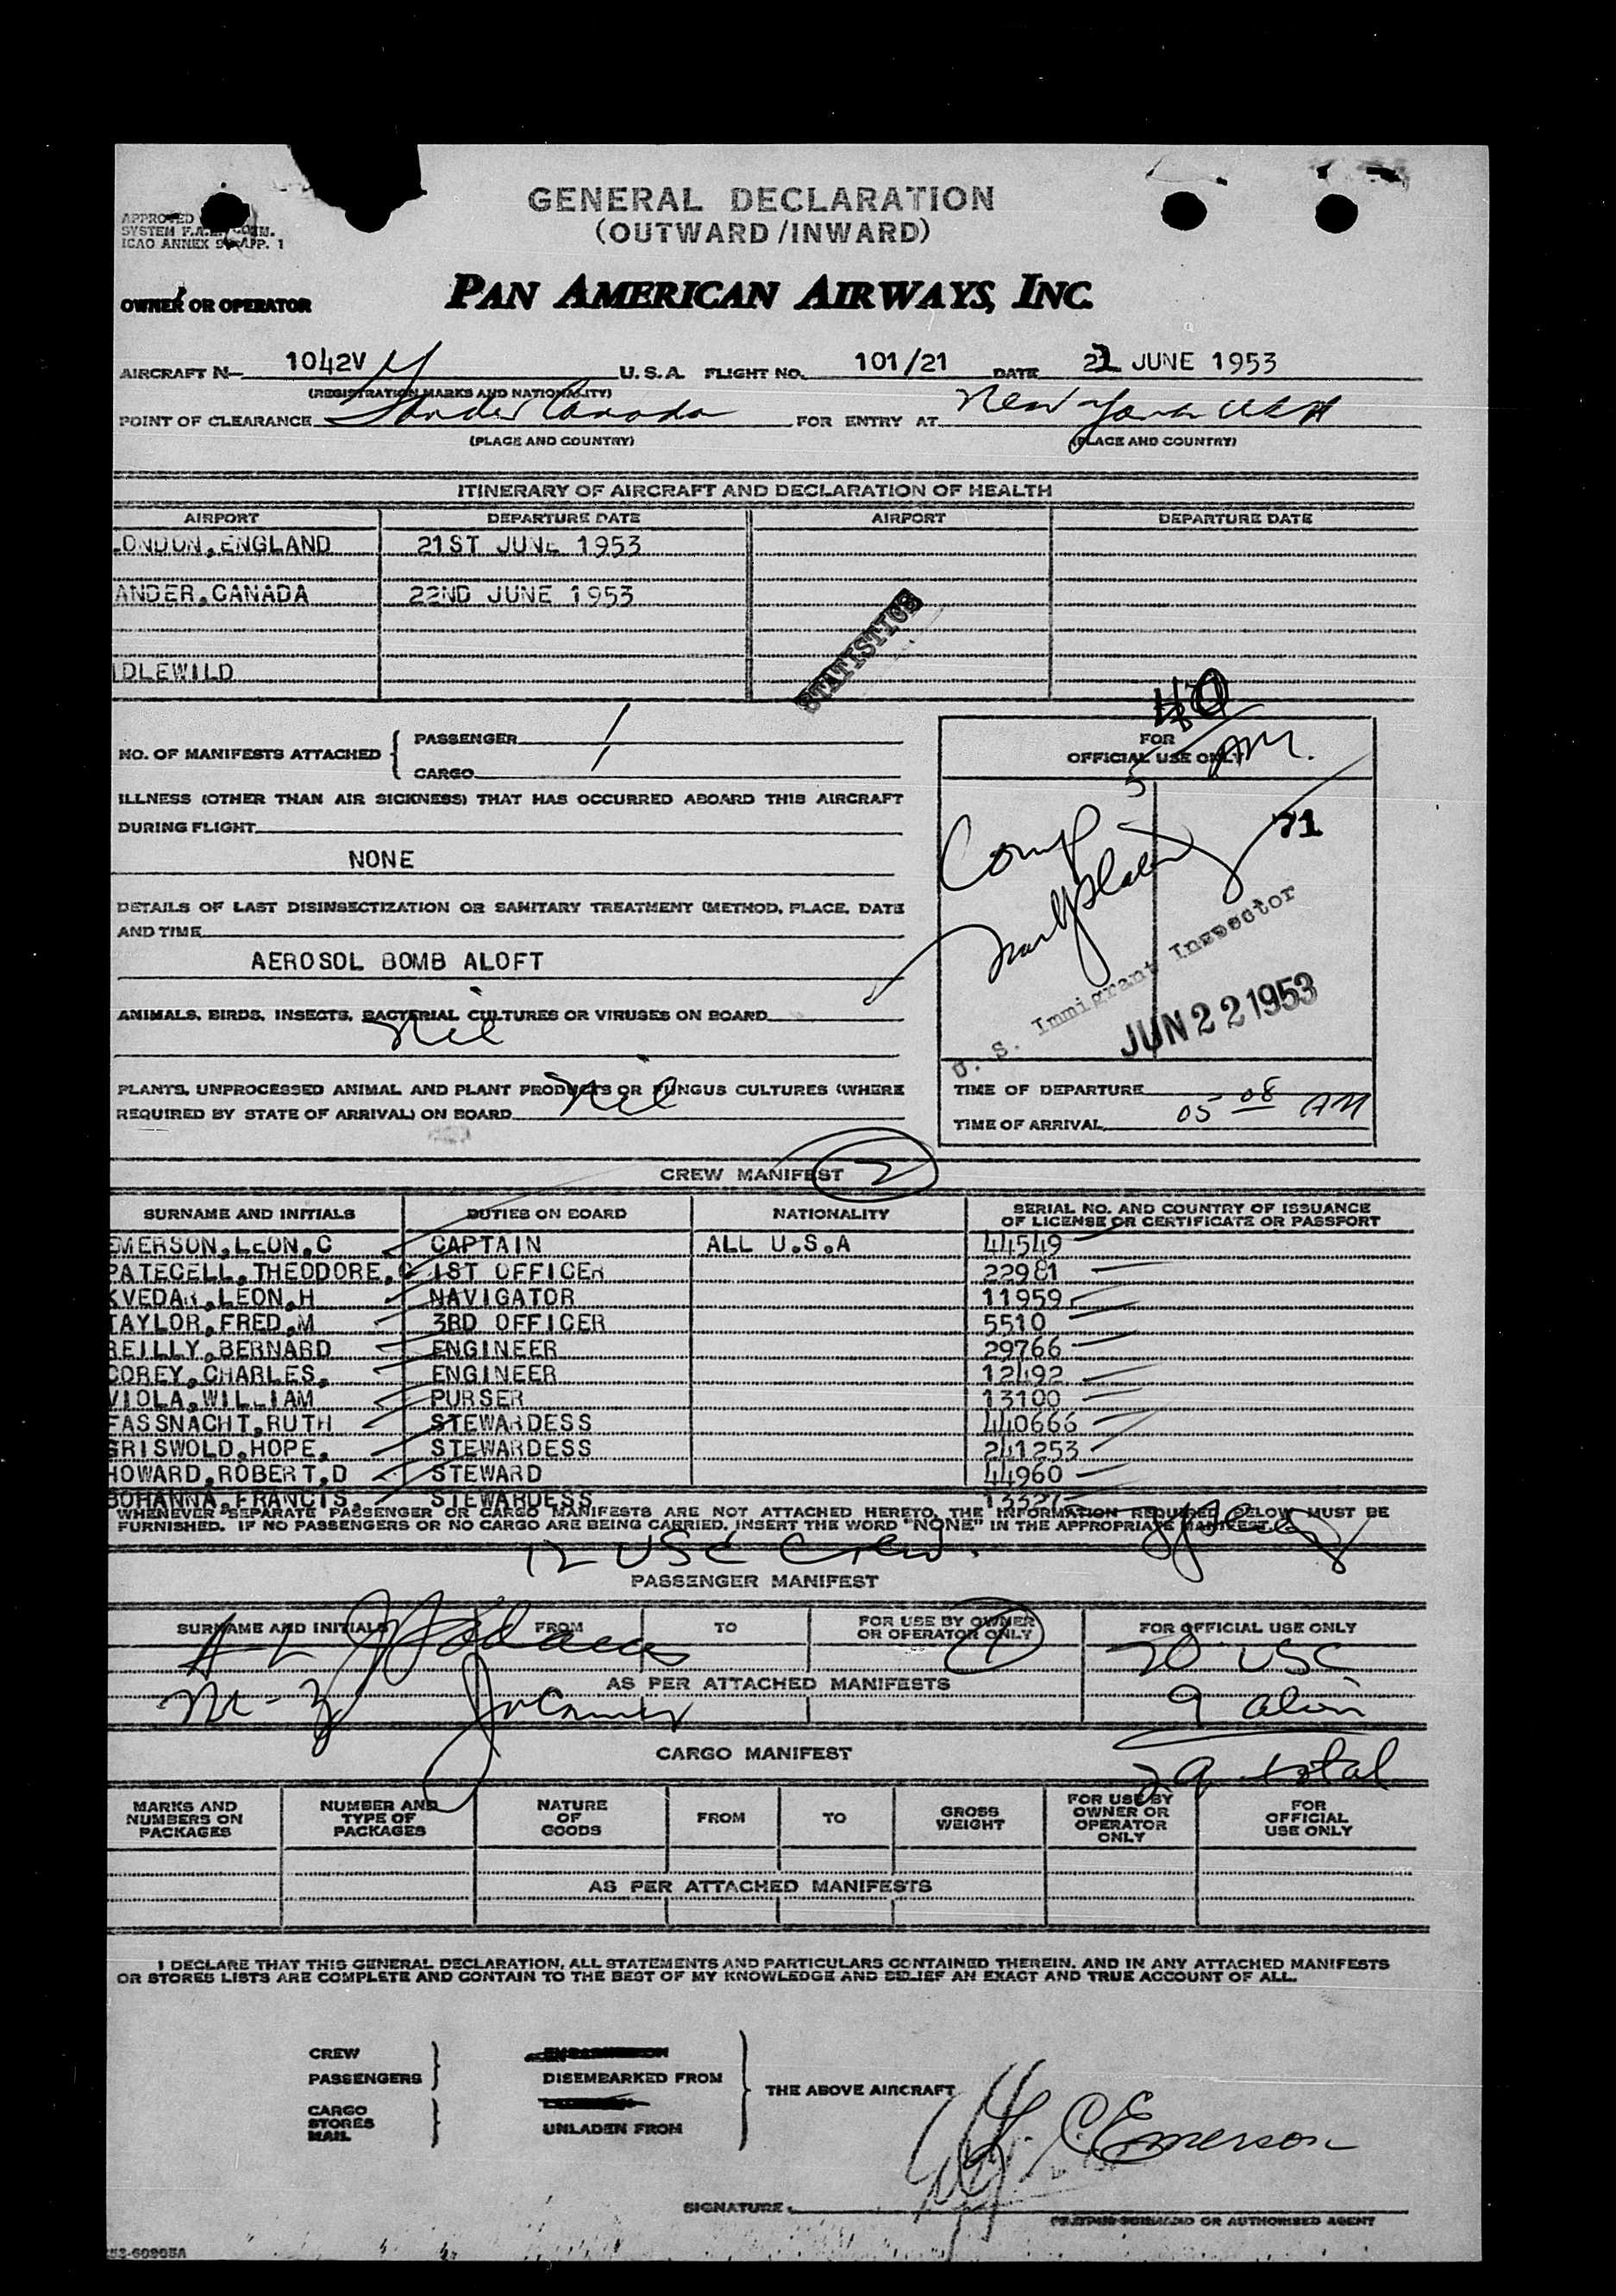 GENERAL DECLARATION
(OUTWARD/INWARD)
APPROVED
SYSTEM F.A.
ICAO ANNEX 9 APP. 1
OWNER OR OPERATOR PAN AMERICAN AIRWAYS, INC.
AIRCRAFT N- 1042V U.S.A. FLIGHT NO. 101/21 DATE 22 JUNE 1953
(REGISTRATION MARKS AND NATIONALITY)
POINT OF CLEARANCE Gander Canada FOR ENTRY AT New York USA
(PLACE AND COUNTRY) (PLACE AND COUNTRY)
ITINERARY OF AIRCRAFT AND DECLARATION OF HEALTH
AIRPORT DEPARTURE DATE AIRPORT DEPARTURE DATE
LONDON, ENGLAND 21ST JUNE 1953
ANDER, CANADA 22ND JUNE 1953
STATISTICS
IDLEWILD
NO. OF MANIFESTS ATTACHED { PASSENGER 1
CARGO 1
FOR
OFFICIAL USE ONLY
AM.
ILLNESS (OTHER THAN AIR SICKNESS) THAT HAS OCCURRED ABOARD THIS AIRCRAFT
DURING FLIGHT
71
NONE
DETAILS OF LAST DISINSECTIZATION OR SANITARY TREATMENT (METHOD, PLACE, DATE
AND TIME
AEROSOL BOMB ALOFT
U. S. Immigrant Inspector
JUN 22 1953
ANIMALS, BIRDS, INSECTS, BACTERIAL CULTURES OR VIRUSES ON BOARD
Nil
PLANTS, UNPROCESSED ANIMAL AND PLANT PRODUCTS OR FUNGUS CULTURES (WHERE
REQUIRED BY STATE OF ARRIVAL) ON BOARD Nil
TIME OF DEPARTURE
TIME OF ARRIVAL 05 08 AM
CREW MANIFEST 2
SURNAME AND INITIALS DUTIES ON BOARD NATIONALITY SERIAL NO. AND COUNTRY OF ISSUANCE
OF LICENSE OR CERTIFICATE OR PASSPORT
EMERSON, LEON, C CAPTAIN ALL U.S.A 44549
PATECELL, THEODORE, 1ST OFFICER 22981
KVEDAR, LEON, H NAVIGATOR 11959
TAYLOR, FRED, M 3RD OFFICER 5510
REILLY, BERNARD ENGINEER 29766
COREY, CHARLES, ENGINEER 12492
VIOLA, WILLIAM PURSER 13100
FASSNACHT, RUTH STEWARDESS 440666
GRISWOLD, HOPE, STEWARDESS 241253
HOWARD, ROBERT, D STEWARD 44960
BOHANNA, FRANCIS, STEWARDESS 13327
WHENEVER SEPARATE PASSENGER OR CARGO MANIFESTS ARE NOT ATTACHED HERETO, THE INFORMATION REQUIRED BELOW MUST BE
FURNISHED. IF NO PASSENGERS OR NO CARGO ARE BEING CARRIED, INSERT THE WORD "NONE" IN THE APPROPRIATE MANIFEST.
12 USC Crew.
PASSENGER MANIFEST
SURNAME AND INITIALS FROM TO FOR USE BY OWNER
OR OPERATOR ONLY FOR OFFICIAL USE ONLY
A-L 1 20 USC
AS PER ATTACHED MANIFESTS
M-Z 9 alien
29 total
CARGO MANIFEST
MARKS AND
NUMBERS ON
PACKAGES NUMBER AND
TYPE OF
PACKAGES NATURE
OF
GOODS FROM TO GROSS
WEIGHT FOR USE BY
OWNER OR
OPERATOR
ONLY FOR
OFFICIAL
USE ONLY
AS PER ATTACHED MANIFESTS
I DECLARE THAT THIS GENERAL DECLARATION, ALL STATEMENTS AND PARTICULARS CONTAINED THEREIN, AND IN ANY ATTACHED MANIFESTS
OR STORES LISTS ARE COMPLETE AND CONTAIN TO THE BEST OF MY KNOWLEDGE AND BELIEF AN EXACT AND TRUE ACCOUNT OF ALL.
CREW
PASSENGERS } DISEMBARKED FROM
THE ABOVE AIRCRAFT
CARGO
STORES
MAIL } UNLADEN FROM
L. C. Emerson
SIGNATURE
OR AUTHORISED AGENT